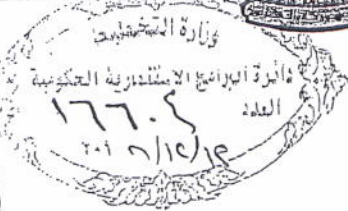 وزارة التخطيط
دائرة البرامج الاستثمارية الحكومية
العدد ١٦٦٠٤
٢٠١٨/١٢/١٩